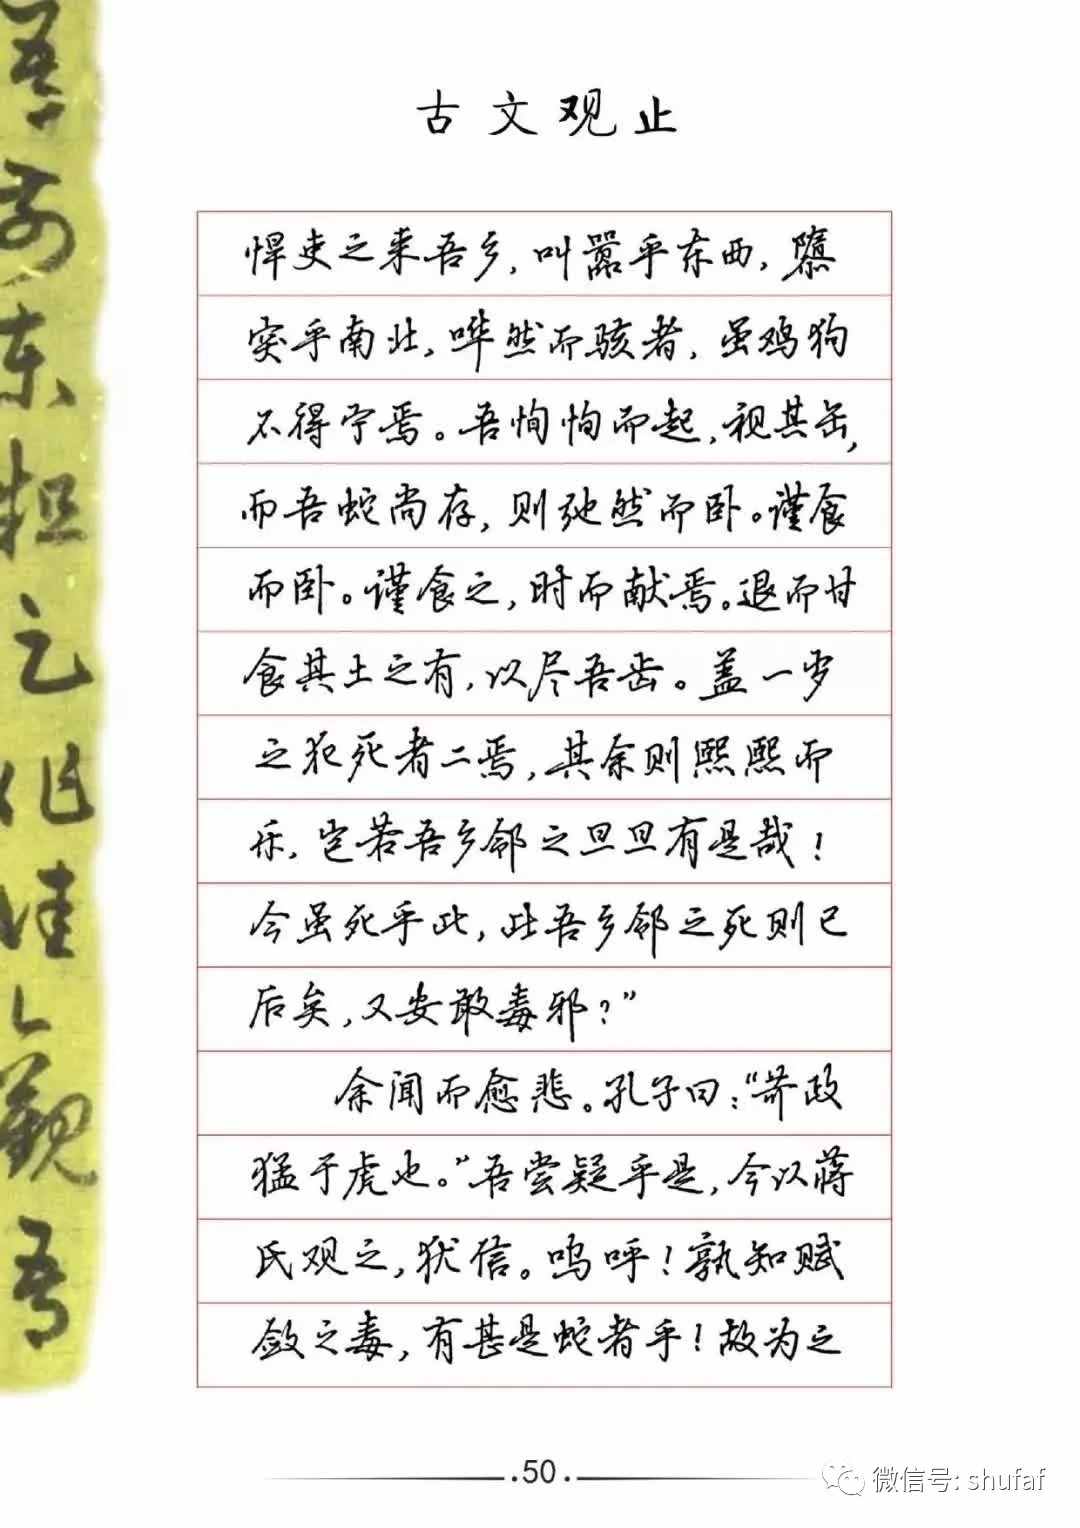 古文观止
悍吏之来吾乡，叫嚣乎东西，隳
突乎南北，哗然而骇者，虽鸡狗
不得宁焉。吾恂恂而起，视其缶，
而吾蛇尚存，则弛然而卧。谨食
而卧。谨食之，时而献焉。退而甘
食其土之有，以尽吾齿。盖一岁
之犯死者二焉，其余则熙熙而
乐，岂若吾乡邻之旦旦有是哉！
今虽死乎此，比吾乡邻之死则已
后矣，又安敢毒邪？”
余闻而愈悲。孔子曰：“苛政
猛于虎也。”吾尝疑乎是，今以蒋
氏观之，犹信。呜呼！孰知赋
敛之毒，有甚是蛇者乎！故为之
.50.
微信号: shufaf